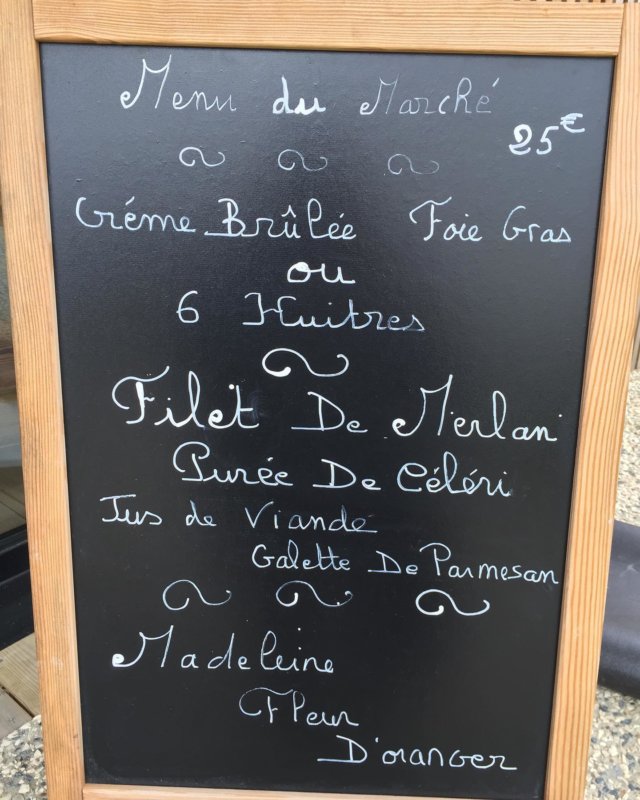 Menu du Marché
25€
Créme Brûlée Foie Gras
ou
6 Huitres
Filet De Merlan
Purée De Céléri
Jus de Viande
Galette De Parmesan
Madeleine
Fleur
D'oranger